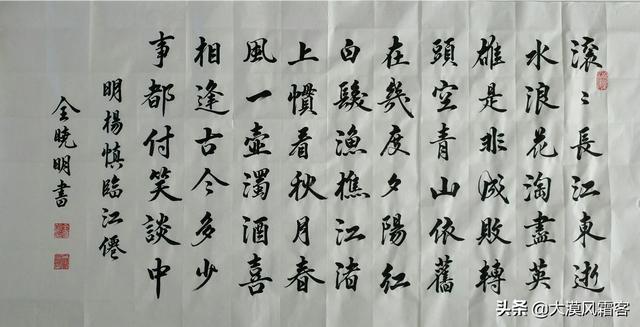 滚〻長江東逝
水浪花淘盡英
雄是非成敗轉
頭空青山依舊
在幾度夕陽紅
白髮漁樵江渚
上慣看秋月春
風一壺濁酒喜
相逢古今多少
事都付笑談中
明楊慎臨江僊
全曉明書
头条 @大漠风霜客